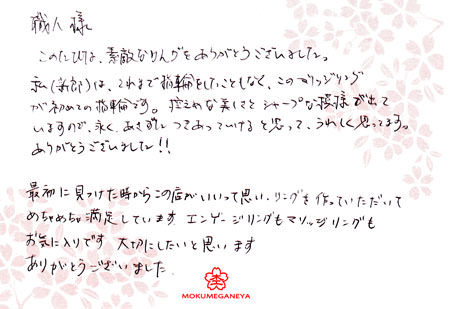 職人様
このたびは、素敵なりんグをありがとうございました。
私(新郎)は、これまで指輪をしたことしなく、このマリッジリング
が初めての指輪です。控えめな美しさとシャープな模様が出て
いますので、永く、あきずに つきあっていけると思って、うれしく思ってます。
ありがとうございました!!
最初に見つけた時からこの店がいいって思い、リングを作っていただいて
めちゃめちゃ満足しています。エンゲージリングもマリッジリングも
お気に入りです 大切にしたいと思います
ありがとうございました。
MOKUMEGANEYA